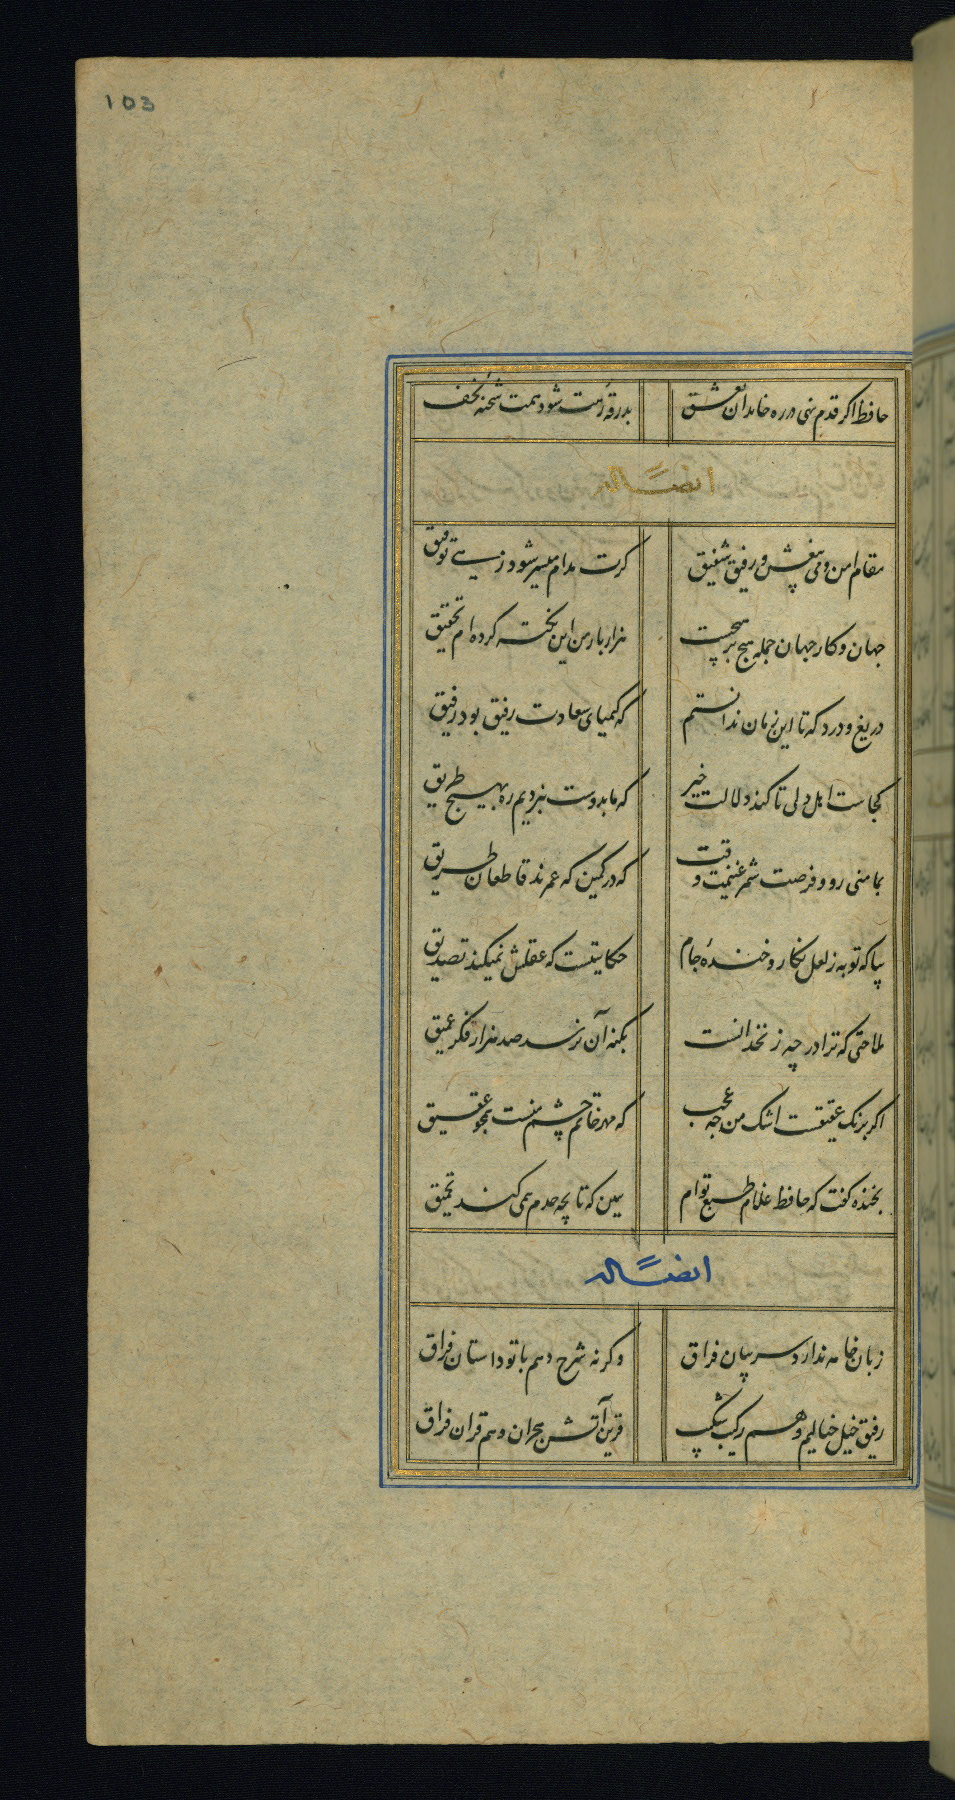 103
حافظ اگر قدم نهی در ره خاندان بعشق بدرقه رهت شود همت شحنه نجف
ایضا له
مقام امن و می بیغش و رفیق شفیق گرت مدام میسر شود زهی توفیق
جهان و کار جهان جمله هیچ بر هیچست هزار بار من این نکته کرده ام تحقیق
دریغ و درد که تا این زمان ندانستم که کیمیای سعادت رفیق بود رفیق
کجاست اهل دلی تا کند دلالت خیر که ما بدوست نبردیم ره بهیچ طریق
بمامنی رو و فرصت شمر غنیمت وقت که در کمین که عمرند قاطعان طریق
بیا که توبه ز لعل نگار و خنده جام حکایتیست که عقلش نمیکند تصدیق
ملاحتی که ترا در چه زنخدانست بکنه آن نرسد صد هزار فکر عمیق
اگر برنگ عقیقست اشک من چه عجب که مهر خاتم چشم منست همچو عقیق
بخنده گفت که حافظ غلام طبع توام ببین که تا بچه حدم همی کند تحمیق
ایضا له
زبان خامه ندارد سر بیان فراق وگرنه شرح دهم با تو داستان فراق
رفیق خیل خیالیم و هم رکیب شکیب قرین آتش هجران و هم قران فراق